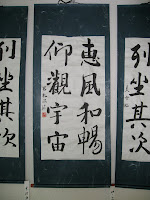 列坐其次
惠風和暢
仰觀宇宙
列坐其次